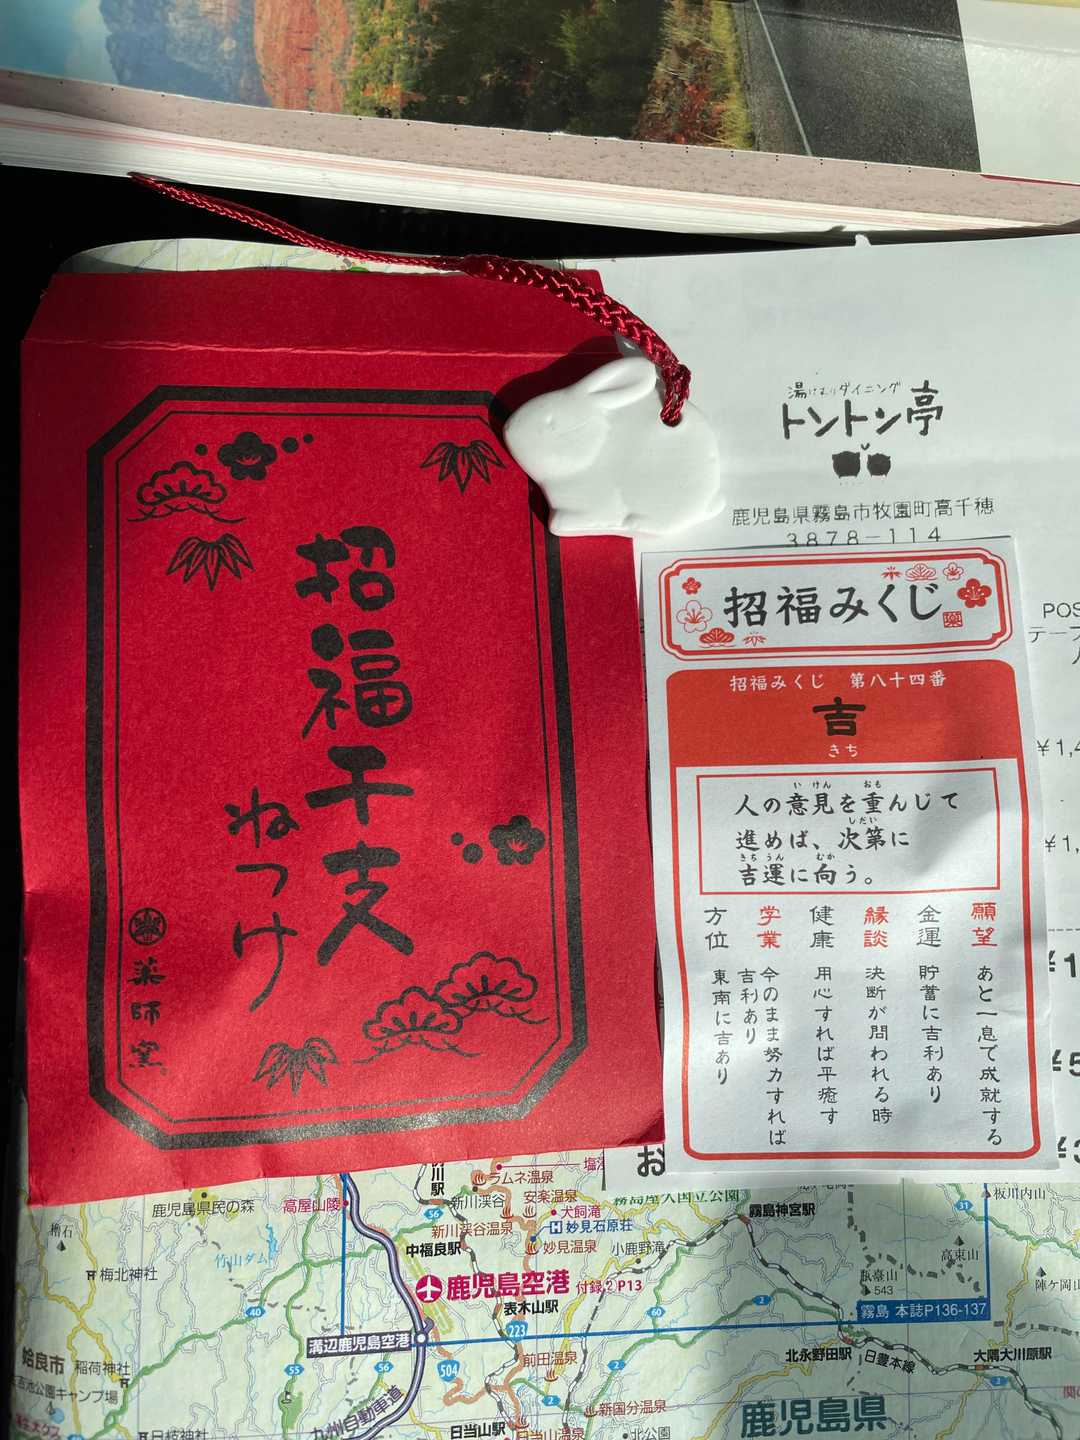 招福干支
ねつけ
薬師窯
湯けむりダイニング
トントン亭
鹿児島県霧島市牧園町高千穂
3878-114
POS
招福みくじ
招福みくじ 第八十四番
吉
きち
人の意見を重んじて
いけん おも
進めば、次第に
しだい
吉運に向う。
きちうん むか
願望 あと一息で成就する
金運 貯蓄に吉利あり
縁談 決断が問われる時
健康 用心すれば平癒す
学業 今のまま努力すれば
吉利あり
方位 東南に吉あり
お
川駅
ラムネ温泉
新川渓谷
安楽温泉
鹿児島県民の森
高屋山陵
56
犬飼滝
新川渓谷温泉
妙見石原荘
霧島神宮駅
31
板川内山
中福良駅
妙見温泉
小鹿野滝
竹山ダム
高東山
梅北神社
鹿児島空港 付録2P13
543
陣ケ岡山
表木山駅
2
霧島 本誌P136-137
40
60
223
溝辺鹿児島空港
姶良市
稲荷神社
55
56
504
前田温泉
2
北永野田駅
日豊本線
大隅大川原駅
2
キャンプ場
九州自動車道
新国分温泉
鹿児島県
日枝神社
日当山駅
日当山温泉
北公園